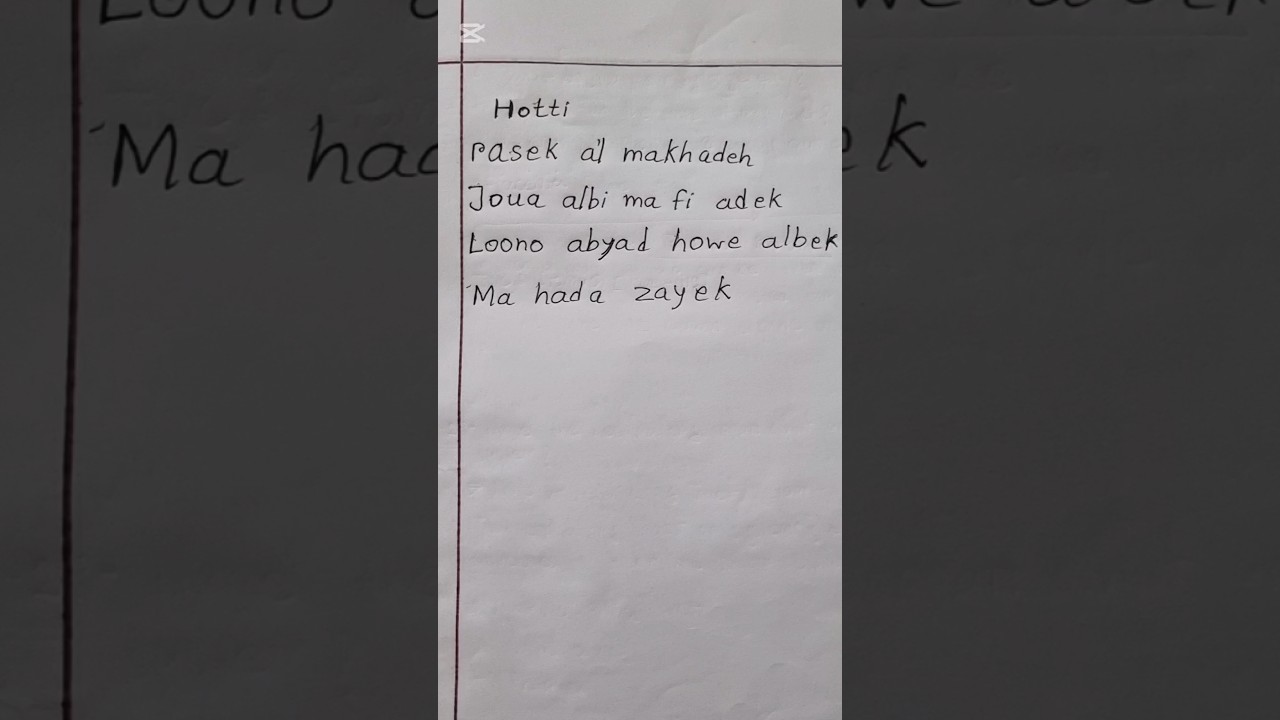 Hotti
rasek a'l makhadeh
Joua albi ma fi adek
Loono abyad howe albek
Ma hada zayek